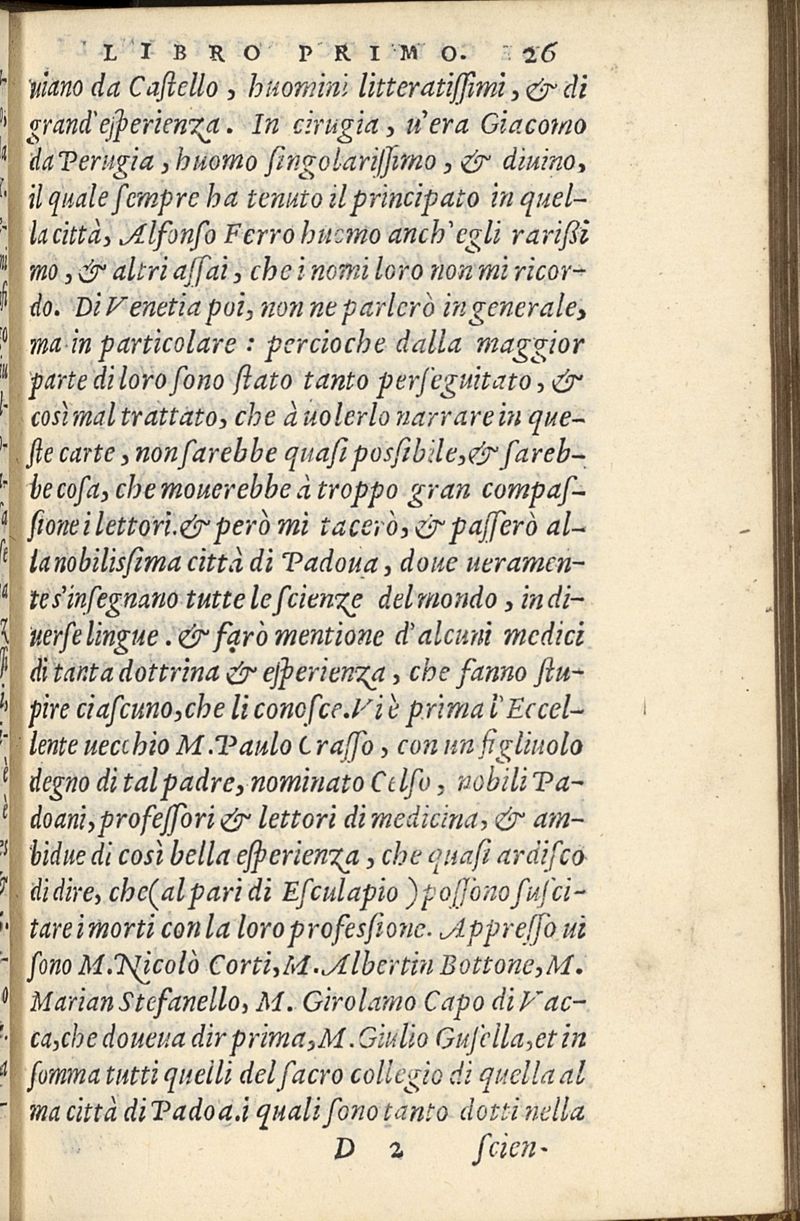 LIBRO PRIMO. 26
uiano da Caſtello, huomini litteratiſſimi, & di
grand'eſperienza. In cirugia, u'era Giacomo
da Perugia, huomo ſingolariſſimo, & diuino,
il quale ſempre ha tenuto il principato in quel-
la città, Alfonſo Ferro huomo anch'egli rariſsi
mo, & altri aſſai, che i nomi loro non mi ricor-
do. Di Venetia poi, non ne parlerò in generale,
ma in particolare: percioche dalla maggior
parte di loro ſono ſtato tanto perſeguitato, &
così mal trattato, che à uolerlo narrare in que-
ſte carte, non ſarebbe quaſi poſsibile, & ſareb-
be coſa, che mouerebbe à troppo gran compaſ-
ſione i lettori. & però mi tacerò, & paſſerò al-
la nobiliſsima città di Padoua, doue ueramen-
te s'inſegnano tutte le ſcienze del mondo, in di-
uerſe lingue. & farò mentione d'alcuni medici
di tanta dottrina & eſperienza, che fanno ſtu-
pire ciaſcuno, che li conoſce. Vi è prima l'Eccel-
lente uecchio M. Paulo Craſſo, con un figliuolo
degno di tal padre, nominato Celſo, nobili Pa-
doani, profeſſori & lettori di medicina, & am-
bidue di così bella eſperienza, che quaſi ardiſco
di dire, che (al pari di Eſculapio) poſſono ſuſci-
tare i morti con la loro profeſsione. Appreſſo ui
ſono M. Nicolò Corti, M. Albertin Bottone, M.
Marian Stefanello, M. Girolamo Capo di Vac-
ca, che doueua dir prima, M. Giulio Guſella, et in
ſomma tutti quelli del ſacro collegio di quella al
ma città di Padoa. i quali ſono tanto dotti nella
D 2 ſcien-